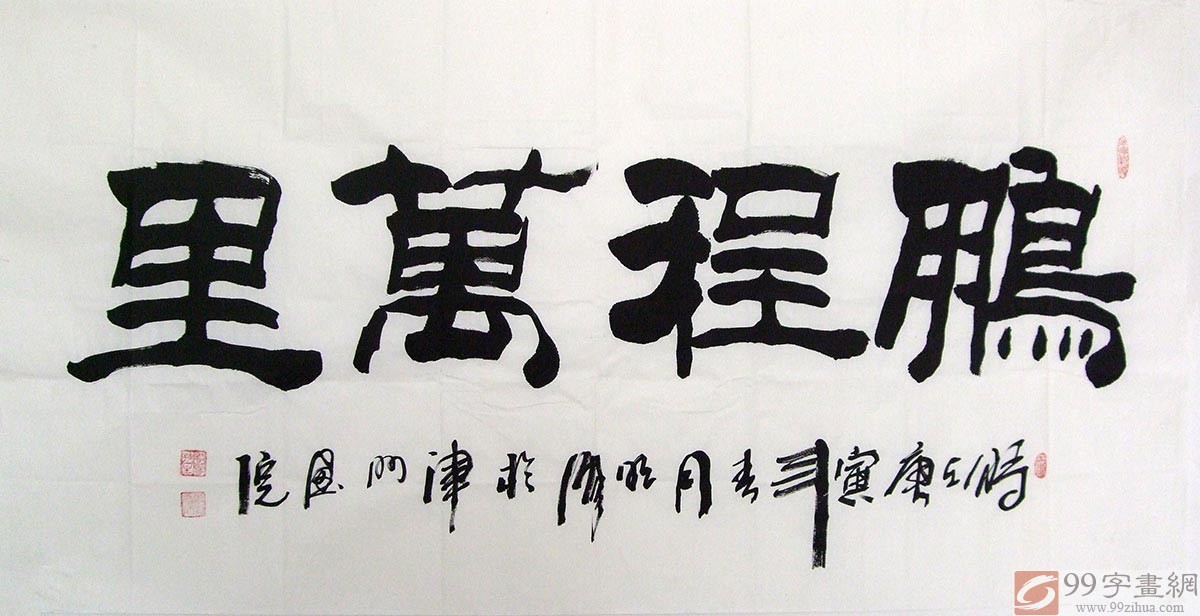 鵬程萬里
時在庚寅年春月明於津門畫院
99字畫網
www.99zihua.com